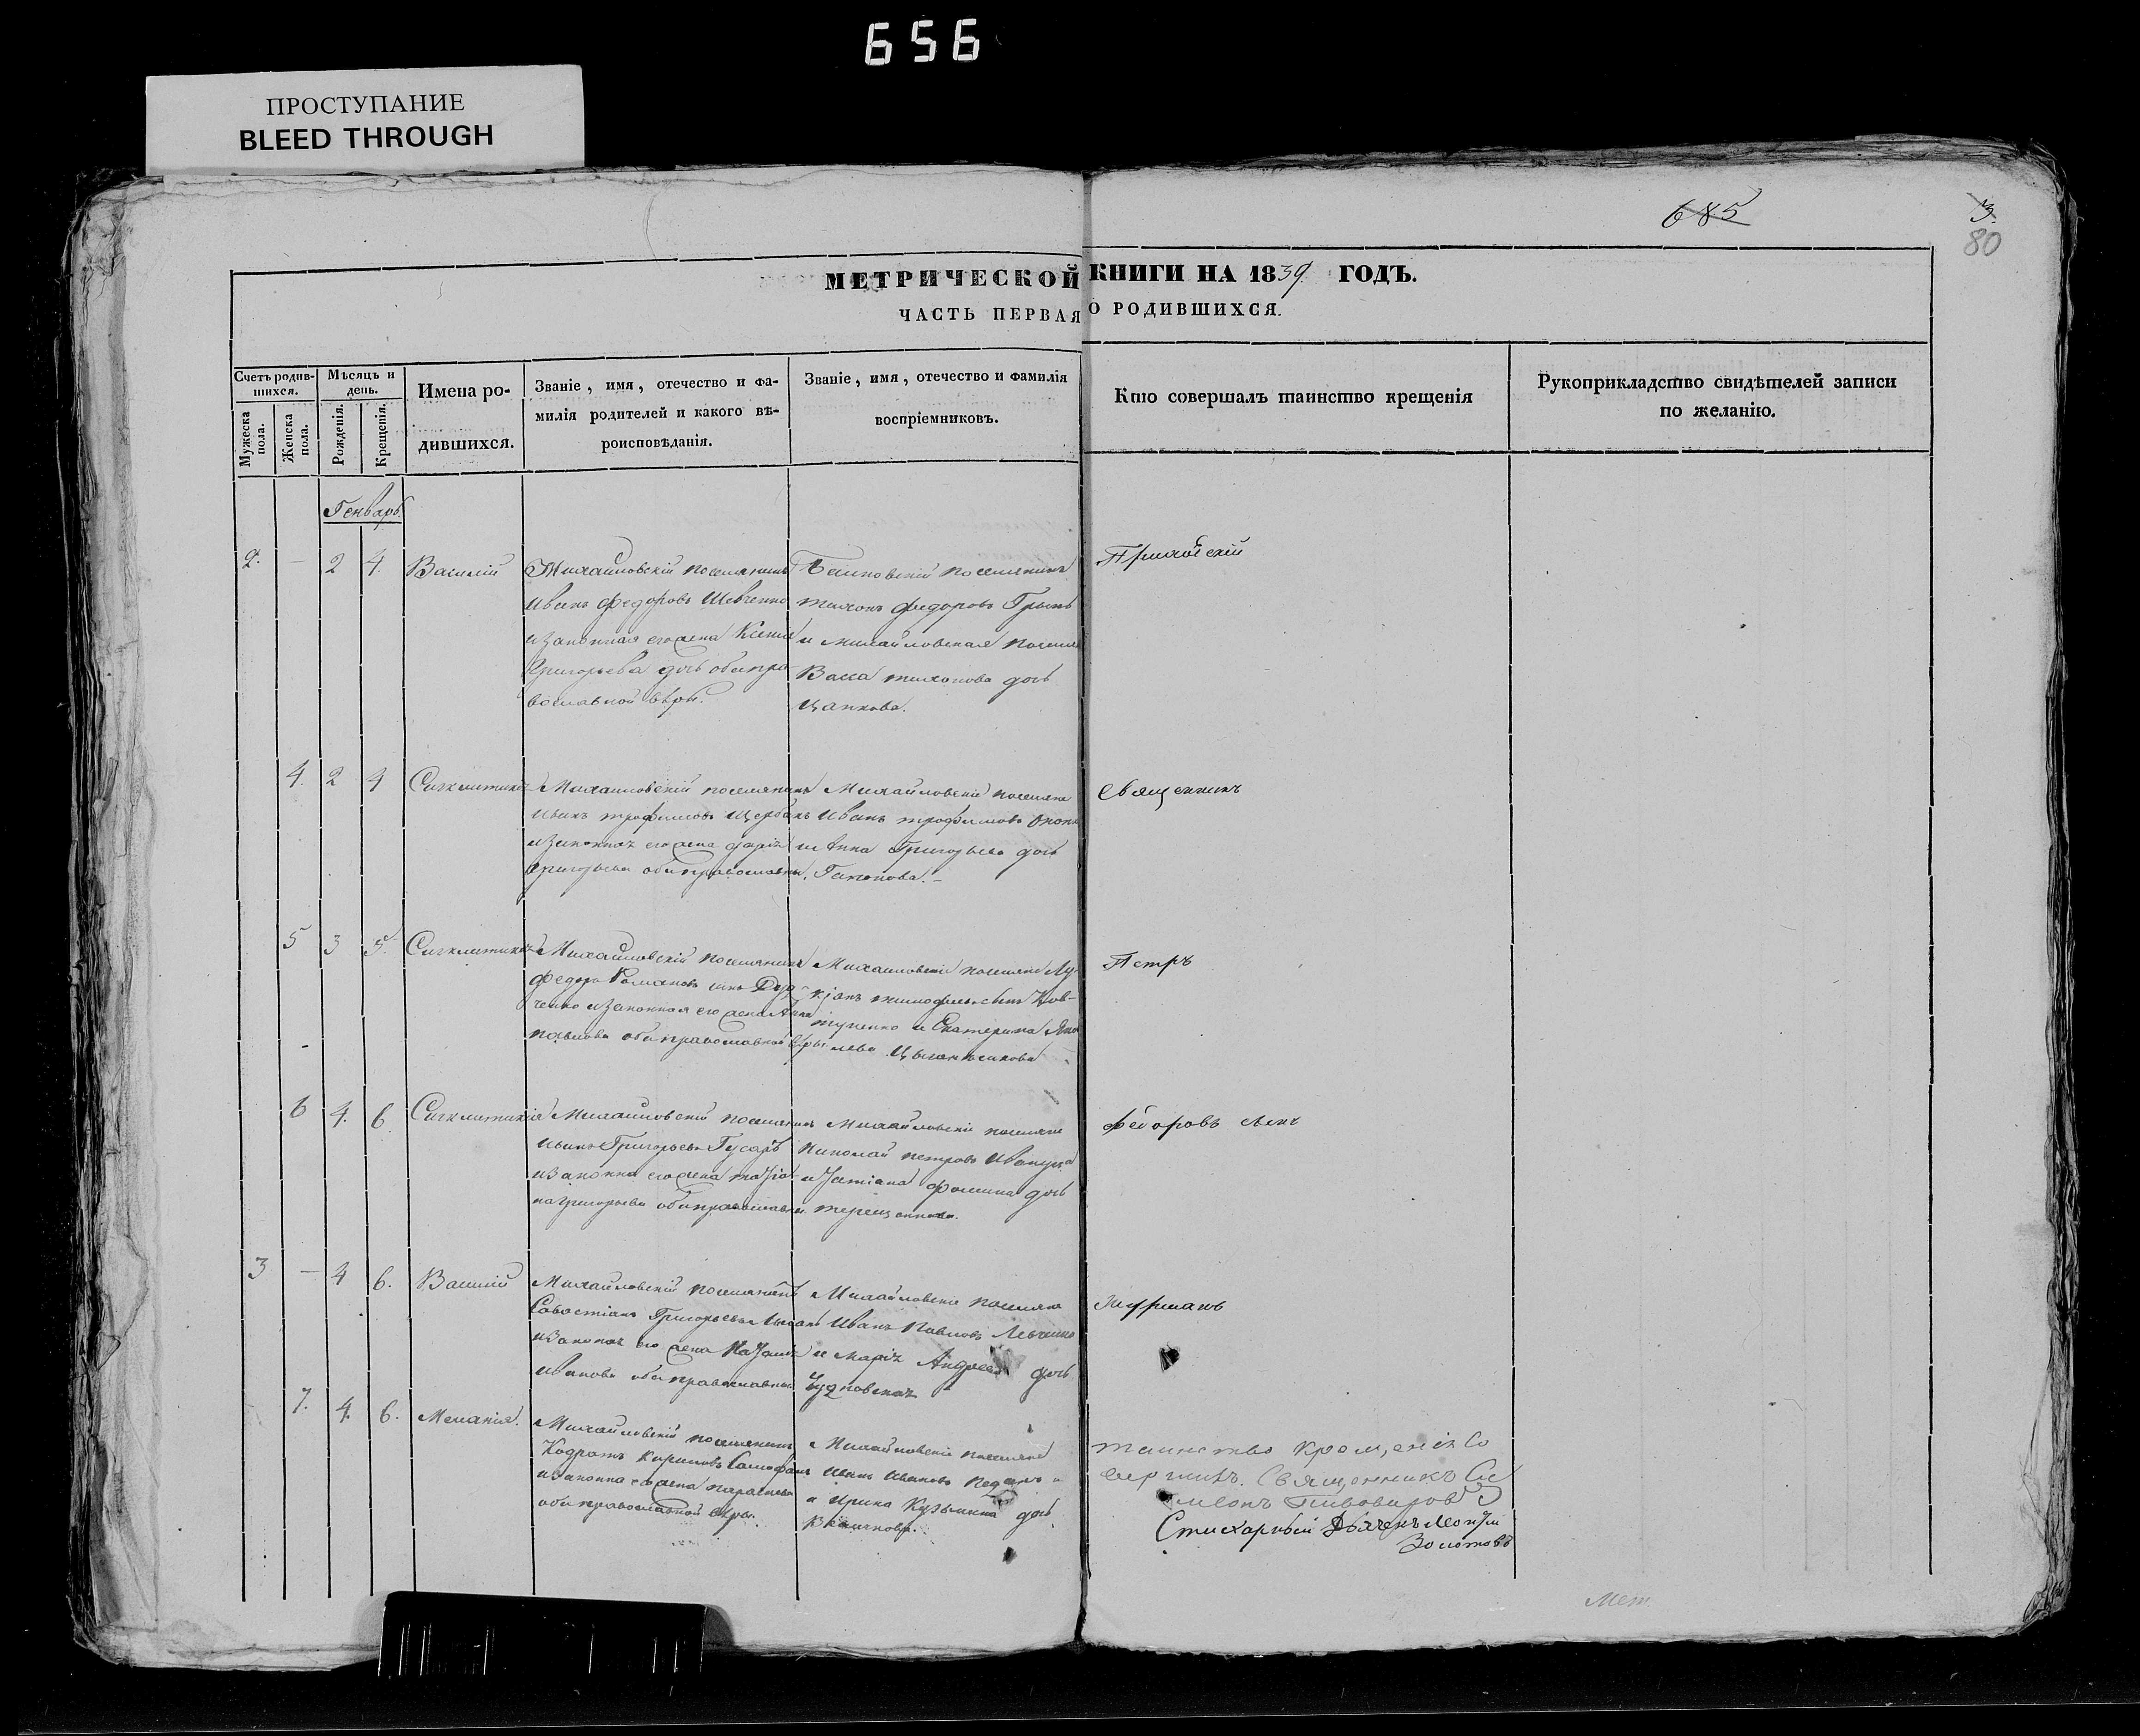 656
ПРОСТУПАНИЕ
BLEED THROUGH
685
3.
80
МЕТРИЧЕСКОЙ КНИГИ НА 1839 ГОДЪ.
ЧАСТЬ ПЕРВАЯ О РОДИВШИХСЯ.
Счетъ родив-
шихся.
Мужеска пола.
Женска пола.
Мѣсяцъ и
день.
Рожденія.
Крещенія.
Имена ро-
дившихся.
Званіе, имя, отечество и фа-
милія родителей и какого вѣ-
роисповѣданія.
Званіе, имя, отечество и фамилія
воспріемниковъ.
Кто совершалъ таинство крещенія
Рукоприкладство свидѣтелей записи
по желанію.
Генварь.
2. — 2 4. Василій
Михайловскій поселянинъ
Иванъ Федоровъ Шевченко
и законная его жена Ксенія
Григорьева дочь оба пра-
вославной вѣры.
поселянинъ
Тихонъ Федоровъ
и Михайловская
Васса Тихонова дочь
Цапкова.
Приходскій
4. 2 4 Сигклитикія
Михайловскій поселянинъ
Иванъ Трофимовъ Щербакъ
и законная его жена Дарія
Григорьева оба православны.
Михайловскіе поселяне
Иванъ Трофимовъ
и Анна Григорьева дочь
Гапонова.—
Священникъ
5 3 5. Сигклитикія
Михайловскій поселянинъ
Федоръ Романовъ сынъ
ченко и законная его жена Анна
Павлова оба православной вѣры.
Михайловскіе поселяне Лу-
кіанъ Тимофеевъ сынъ Ков-
туненко и Екатерина
Петръ
6 4. 6. Сигклитикія
Михайловскій поселянинъ
Иванъ Григорьевъ Гусаръ
и законна его жена Татіа-
на Григорьева оба православны.
Михайловскіе поселяне
Николай Петровъ
и Татіана Фомина дочь
Терещенкова.
Федоровъ сынъ
3 — 4 6. Василій
Михайловскій поселянинъ
Савостіанъ Григорьевъ
и законная его жена Наталія
Иванова оба православны
Михайловскіе поселяне
Иванъ Павловъ
и Марія Андреева дочь
Чудновская
Журманъ
7. 4. 6. Меланія.
Михайловскій поселянинъ
Кодратъ Кириловъ
и законна его жена Параскева
оба православной вѣры.
Михайловскіе поселяне
Иванъ Ивановъ
и Ирина Кузьмина дочь
таинство крещенія Со
вершилъ. Священникъ Си
меонъ Пивоваровъ
Стихарный Дьячекъ Леонтій
Золотовъ
Мет.